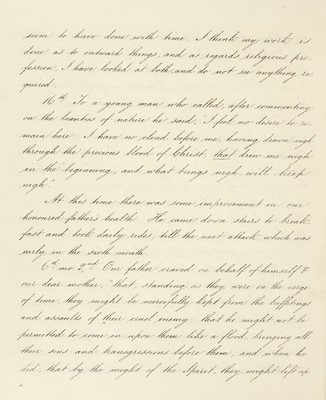 seem to have done with time. I think my work is
done as to outward things, and as regards religious pro-
fession, I have looked at both, and do not see anything re-
quired.
16th To a young man who called, after commenting
on the beauties of nature he said; I feel no desire to re-
main here. I have no cloud before me, having drawn nigh
through the precious blood of Christ, that drew me nigh
in the beginning, and what brings nigh, will keep
nigh."
At this time there was some improvement in our
honoured father's health. He came down stairs to break-
fast and took daily rides, till the next attack, which was
early in the sixth month.
6th mo 2nd. Our father craved on behalf of himself &
our dear mother, "that, standing as they were on the verge
of time, they might be mercifully kept from the buffetings
and assaults of their cruel enemy; that he might not be
permitted to come in upon them like a flood, bringing all
their sins and transgressions before them; and when he
did, that by the might of the Spirit, they might lift up